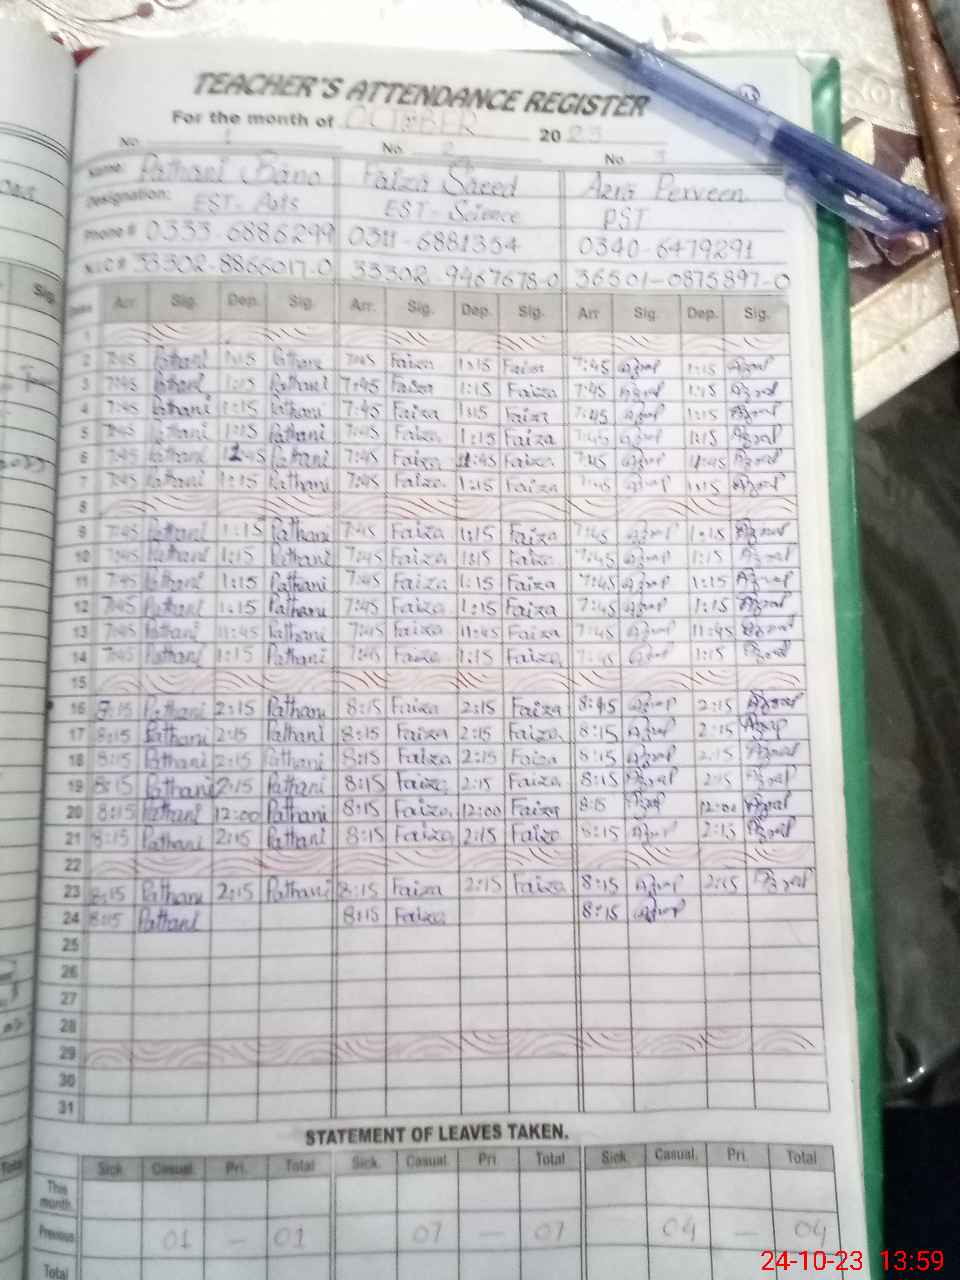 TEACHER'S ATTENDANCE REGISTER
For the month of OCTOBER 2023
No 1 No 2 No 3
Name: Pathani Bano Faiza Saeed Azra Perveen
Designation: EST- Arts EST- Science PST
Phone # 0333-6886299 0311-6881354 0340-6479291
N.I.C # 33302-8866017-0 33302-9467678-0 36501-0875897-0
Dates Arr. Sig. Dep. Sig. Arr. Sig. Dep. Sig. Arr Sig. Dep. Sig.
1
2 7:45 Pathani 1:15 Pathani 7:45 Faiza 1:15 Faiza 7:45 1:15
3 7:45 Pathani 1:15 Pathani 7:45 Faiza 1:15 Faiza 7:45 1:15
4 7:45 Pathani 1:15 Pathani 7:45 Faiza 1:15 Faiza 7:45 1:15
5 7:45 Pathani 1:15 Pathani 7:45 Faiza 1:15 Faiza 7:45 1:15
6 7:45 Pathani Pathani 7:45 Faiza 11:45 Faiza 7:45 11:45
7 7:45 Pathani 1:15 Pathani 7:45 Faiza 1:15 Faiza 7:45 1:15
8
9 7:45 Pathani 1:15 Pathani 7:45 Faiza 1:15 Faiza 7:45 1:15
10 7:45 Pathani 1:15 Pathani 7:45 Faiza 1:15 Faiza 7:45 1:15
11 7:45 Pathani 1:15 Pathani 7:45 Faiza 1:15 Faiza 7:45 1:15
12 7:45 Pathani 1:15 Pathani 7:45 Faiza 1:15 Faiza 7:45 1:15
13 7:45 Pathani 11:45 Pathani 7:45 Faiza 11:45 Faiza 7:45 11:45
14 7:45 Pathani 1:15 Pathani 7:45 Faiza 1:15 Faiza 7:45 1:15
15
16 8:15 Pathani 2:15 Pathani 8:15 Faiza 2:15 Faiza 2:15
17 8:15 Pathani 2:15 Pathani 8:15 Faiza 2:15 Faiza 8:15 2:15
18 8:15 Pathani 2:15 Pathani 8:15 Faiza 2:15 Faiza 8:15 2:15
19 8:15 Pathani 2:15 Pathani 8:15 Faiza 2:15 Faiza 8:15 2:15
20 8:15 Pathani 12:00 Pathani 8:15 Faiza 12:00 Faiza 8:15 12:00
21 8:15 Pathani 2:15 Pathani 8:15 Faiza 2:15 Faiza 8:15 2:15
22
23 8:15 Pathani 2:15 Pathani 8:15 Faiza 2:15 Faiza 8:15 2:15
24 8:15 Pathani 8:15 Faiza 8:15
25
26
27
28
29
30
31
STATEMENT OF LEAVES TAKEN.
Sick Casual Pri. Total Sick. Casual. Pri. Total Sick. Casual. Pri. Total
This month.
Previous 01 — 01 07 — 07 04 — 04
Total
24-10-23 13:59